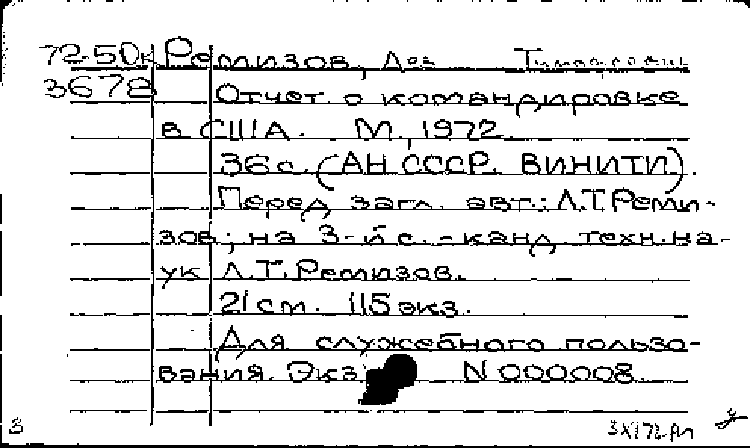 72-50к Ремизов, Лев Тимофеевич
3678
Отчет о командировке
в США. М., 1972.
36 с. (АН СССР. ВИНИТИ).
Перед загл. авт.: Л.Т. Реми-
зов; на 3-й с. - канд. техн. на-
ук Л.Т. Ремизов.
21 см. 115 экз.
Для служебного пользо-
вания. Экз. N 000008
3